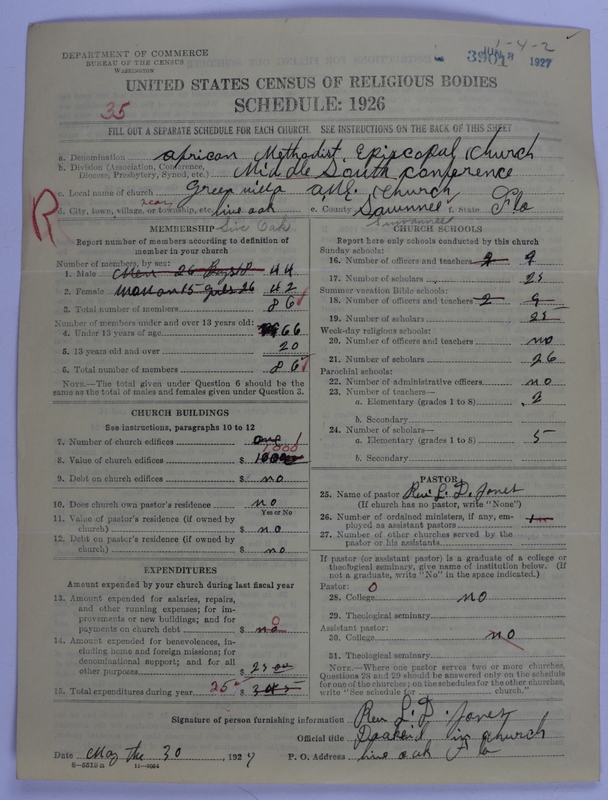 DEPARTMENT OF COMMERCE
BUREAU OF THE CENSUS
WASHINGTON
1-4-2
3901
JUN 8 1927
UNITED STATES CENSUS OF RELIGIOUS BODIES
SCHEDULE: 1926
35
FILL OUT A SEPARATE SCHEDULE FOR EACH CHURCH. SEE INSTRUCTIONS ON THE BACK OF THIS SHEET
a. Denomination African Methodist Episcopal Church
b. Division (Association, Conference, Diocese, Presbytery, Synod, etc.) Middle South Conference
c. Local name of church Green villa AME. Church
d. City, town, village, or township, etc. near live oak e. County Sawnnee f. State Fla
R
Live Oak
Suwannee
MEMBERSHIP
Report number of members according to definition of
member in your church
Number of members, by sex:
1. Male Men 26 Boys 18 44
2. Female Woman 15 girls 26 42
3. Total number of members 86
Number of members under and over 13 years old:
4. Under 13 years of age 66
5. 13 years old and over 20
6. Total number of members 86
NOTE.—The total given under Question 6 should be the
same as the total of males and females given under Question 3.
CHURCH BUILDINGS
See instructions, paragraphs 10 to 12
7. Number of church edifices one 1
8. Value of church edifices $ 1000
9. Debt on church edifices $ no
10. Does church own pastor's residence no
Yes or No
11. Value of pastor's residence (if owned by
church) $ no
12. Debt on pastor's residence (if owned by
church) $ no
EXPENDITURES
Amount expended by your church during last fiscal year
13. Amount expended for salaries, repairs,
and other running expenses; for im-
provements or new buildings; and for
payments on church debt $ no 0
14. Amount expended for benevolences, in-
cluding home and foreign missions; for
denominational support; and for all
other purposes $ 25 00
15. Total expenditures during year 25 $ 345
CHURCH SCHOOLS
Report here only schools conducted by this church
Sunday schools:
16. Number of officers and teachers 2 9
17. Number of scholars 25
Summer vacation Bible schools:
18. Number of officers and teachers 2 9
19. Number of scholars 25
Week-day religious schools:
20. Number of officers and teachers no
21. Number of scholars 26
Parochial schools:
22. Number of administrative officers no
23. Number of teachers—
a. Elementary (grades 1 to 8) 2
b. Secondary
24. Number of scholars—
a. Elementary (grades 1 to 8) 5
b. Secondary
PASTOR
25. Name of pastor Rev. L. D. Jones
(If church has no pastor, write "None")
26. Number of ordained ministers, if any, em-
ployed as assistant pastors
27. Number of other churches served by the
pastor or his assistants
If pastor (or assistant pastor) is a graduate of a college or
theological seminary, give name of institution below. (If
not a graduate, write "No" in the space indicated.)
Pastor: 0
28. College no
29. Theological seminary
Assistant pastor:
30. College no
31. Theological seminary
NOTE.—Where one pastor serves two or more churches,
Questions 28 and 29 should be answered only on the schedule
for one of the churches; on the schedules for the other churches,
write "See schedule for church."
Signature of person furnishing information Rev L. D. Jones
Official title in church
Date May the 30, 1927 P. O. Address live oak Fla
8—5518a 11—9064